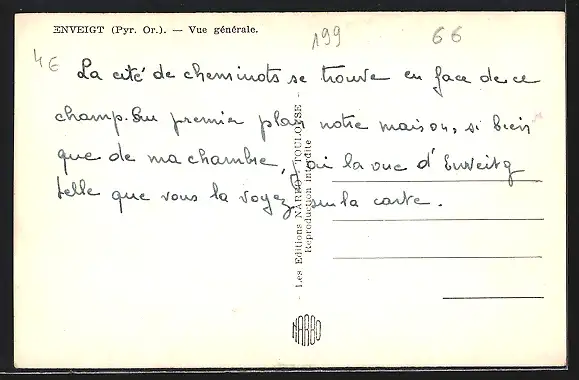 ENVEIGT (Pyr. Or.). — Vue générale.
199
66
4€
La cité de cheminots se trouve en face de ce
champ. Au premier plan notre maison, si bien
que de ma chambre, j'ai la vue d'Enveitg
telle que vous la voyez sur la carte.
- Les Editions NARBO - TOULOUSE -
Reproduction interdite
NARBO